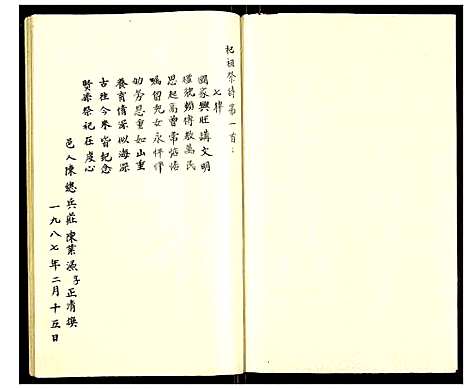 祀祖祭詩第一首：
七律
國家興旺講文明
礼貌賴傳教萬民
思起高曾常悟悟
嘱留兒女永怦怦
劬勞恩重如山重
養育情深似海深
古往今來皆紀念
賢孫祭祀在虔心
邑人陳總兵莊陳業漁子正清撰
一九八七年二月十五日